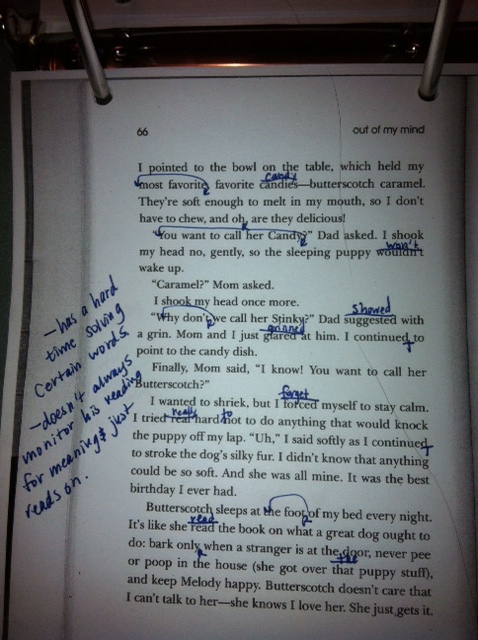 66 out of my mind
I pointed to the bowl on the table, which held my
candy
most favorite, favorite candies—butterscotch caramel.
They're soft enough to melt in my mouth, so I don't
have to chew, and oh, are they delicious!
"You want to call her Candy?" Dad asked. I shook
won't
my head no, gently, so the sleeping puppy wouldn't
wake up.
"Caramel?" Mom asked.
I shook my head once more.
showed
"Why don't we call her Stinky?" Dad suggested with
grinned
a grin. Mom and I just glared at him. I continued
point to the candy dish.
Finally, Mom said, "I know! You want to call her
Butterscotch?"
forget
I wanted to shriek, but I forced myself to stay calm.
really to
I tried real hard not to do anything that would knock
the puppy off my lap. "Uh," I said softly as I continued
to stroke the dog's silky fur. I didn't know that anything
could be so soft. And she was all mine. It was the best
birthday I ever had.
Butterscotch sleeps at the foot of my bed every night.
read
It's like she read the book on what a great dog ought to
do: bark only when a stranger is at the door, never pee
the
or poop in the house (she got over that puppy stuff),
and keep Melody happy. Butterscotch doesn't care that
I can't talk to her—she knows I love her. She just gets it.
- has a hard
time solving
certain words.
- doesn't always
monitor his reading
for meaning & just
reads on.